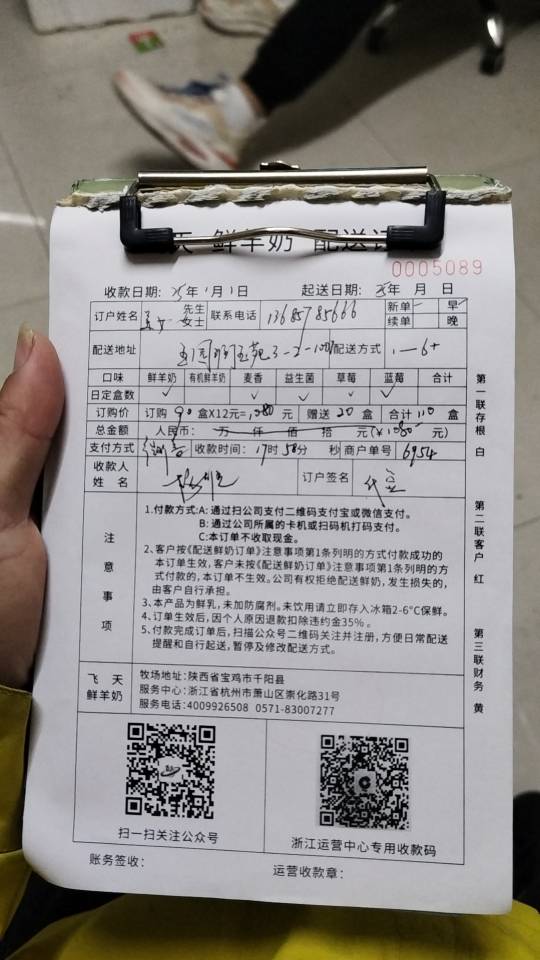 天 鲜羊奶 配送订
0005089
收款日期: 25年1月1日 起送日期: 25年 月 日
订户姓名 先生 女士 联系电话 13685785666 新单 早
续单 晚
配送地址 3-2-1001 配送方式 一6+
口味 鲜羊奶 有机鲜羊奶 麦香 益生菌 草莓 蓝莓 合计
日定盒数 ✓ ✓ ✓ ✓ ✓
订购价 订购 90 盒X12元=1080 元 赠送 20 盒 合计 110 盒
总金额 人民币: 万 仟 佰 拾 元(¥1080元)
支付方式 收款时间: 17时58分 秒 商户单号 6954
收款人姓名 订户签名
注意事项
1.付款方式:A: 通过扫公司支付二维码支付宝或微信支付。
B: 通过公司所属的卡机或扫码机打码支付。
C:本订单不收取现金。
2、客户按《配送鲜奶订单》注意事项第1条列明的方式付款成功的
本订单生效,客户未按《配送鲜奶订单》注意事项第1条列明的方
式付款的,本订单不生效。公司有权拒绝配送鲜奶,发生损失的,
由客户自行承担。
3、本产品为鲜乳,未加防腐剂。未饮用请立即存入冰箱2-6°C保鲜。
4、订单生效后,因个人原因退款扣除违约金35%。
5、付款完成订单后,扫描公众号二维码关注并注册,方便日常配送
提醒和自行起送,暂停及修改配送方式。
飞天
鲜羊奶
牧场地址:陕西省宝鸡市千阳县
服务中心:浙江省杭州市萧山区崇化路31号
服务电话:4009926508 0571-83007277
扫一扫关注公众号
浙江运营中心专用收款码
账务签收: 运营收款章:
第一联存根 白
第二联客户 红
第三联财务 黄